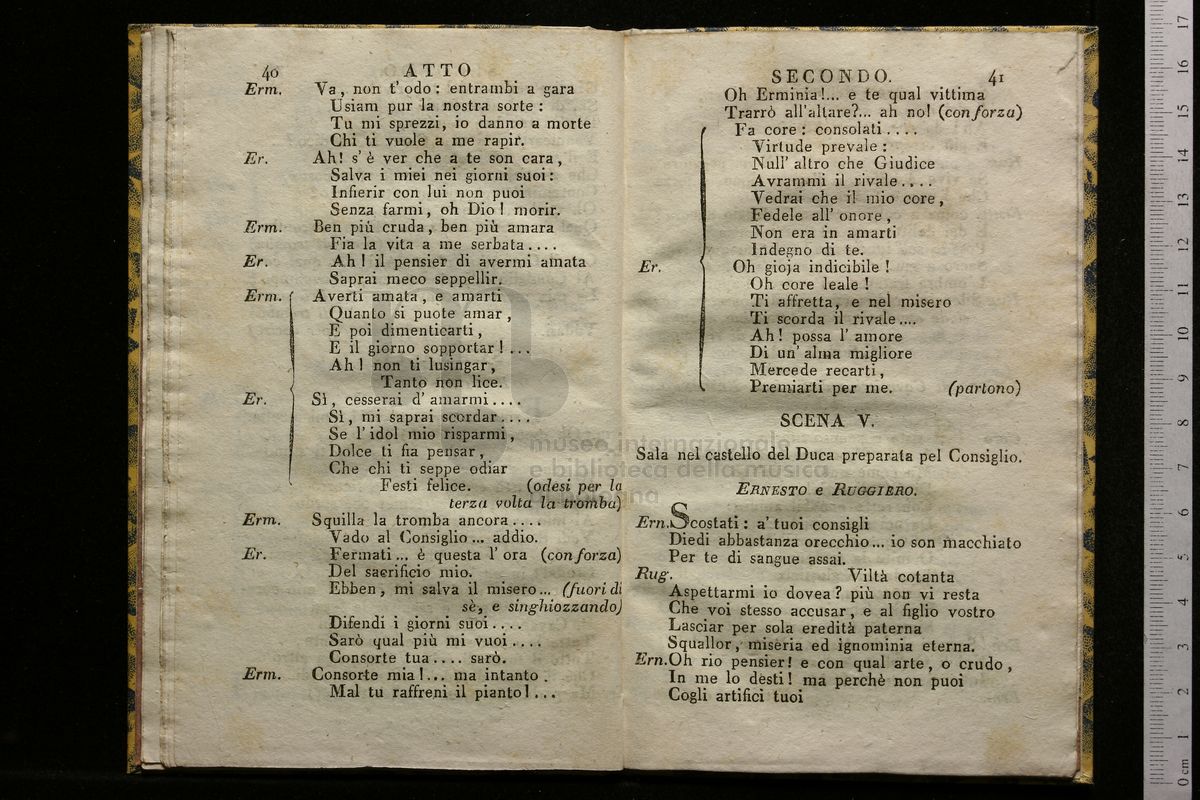 40 ATTO
Erm. Va, non t' odo: entrambi a gara
Usiam pur la nostra sorte:
Tu mi sprezzi, io danno a morte
Chi ti vuole a me rapir.
Er. Ah! s' è ver che a te son cara,
Salva i miei nei giorni suoi:
Infierir con lui non puoi
Senza farmi, oh Dio! morir.
Erm. Ben più cruda, ben più amara
Fia la vita a me serbata....
Er. Ah! il pensier di avermi amata
Saprai meco seppellir.
Erm. Averti amata, e amarti
Quanto si puote amar,
E poi dimenticarti,
E il giorno sopportar!...
Ah! non ti lusingar,
Tanto non lice.
Er. Sì, cesserai d' amarmi....
Sì, mi saprai scordar....
Se l' idol mio risparmi,
Dolce ti fia pensar,
Che chi ti seppe odiar
Festi felice. (odesi per la
terza volta la tromba)
Erm. Squilla la tromba ancora....
Vado al Consiglio... addio.
Er. Fermati... è questa l' ora (con forza)
Del sacrificio mio.
Ebben, mi salva il misero... (fuori di
sè, e singhiozzando)
Difendi i giorni suoi....
Sarò qual più mi vuoi....
Consorte tua.... sarò.
Erm. Consorte mia!... ma intanto.
Mal tu raffreni il pianto!...
SECONDO. 41
Oh Erminia!... e te qual vittima
Trarrò all'altare?... ah no! (con forza)
Fa core: consolati....
Virtude prevale:
Null' altro che Giudice
Avrammi il rivale....
Vedrai che il mio core,
Fedele all' onore,
Non era in amarti
Indegno di te.
Er. Oh gioja indicibile!
Oh core leale!
Ti affretta, e nel misero
Ti scorda il rivale....
Ah! possa l' amore
Di un' alma migliore
Mercede recarti,
Premiarti per me. (partono)
SCENA V.
Sala nel castello del Duca preparata pel Consiglio.
ERNESTO e RUGGIERO.
Ern. Scostati: a' tuoi consigli
Diedi abbastanza orecchio... io son macchiato
Per te di sangue assai.
Rug. Viltà cotanta
Aspettarmi io dovea? più non vi resta
Che voi stesso accusar, e al figlio vostro
Lasciar per sola eredità paterna
Squallor, miseria ed ignominia eterna.
Ern. Oh rio pensier! e con qual arte, o crudo,
In me lo desti! ma perchè non puoi
Cogli artifici tuoi
museo internazionale
e biblioteca della musica